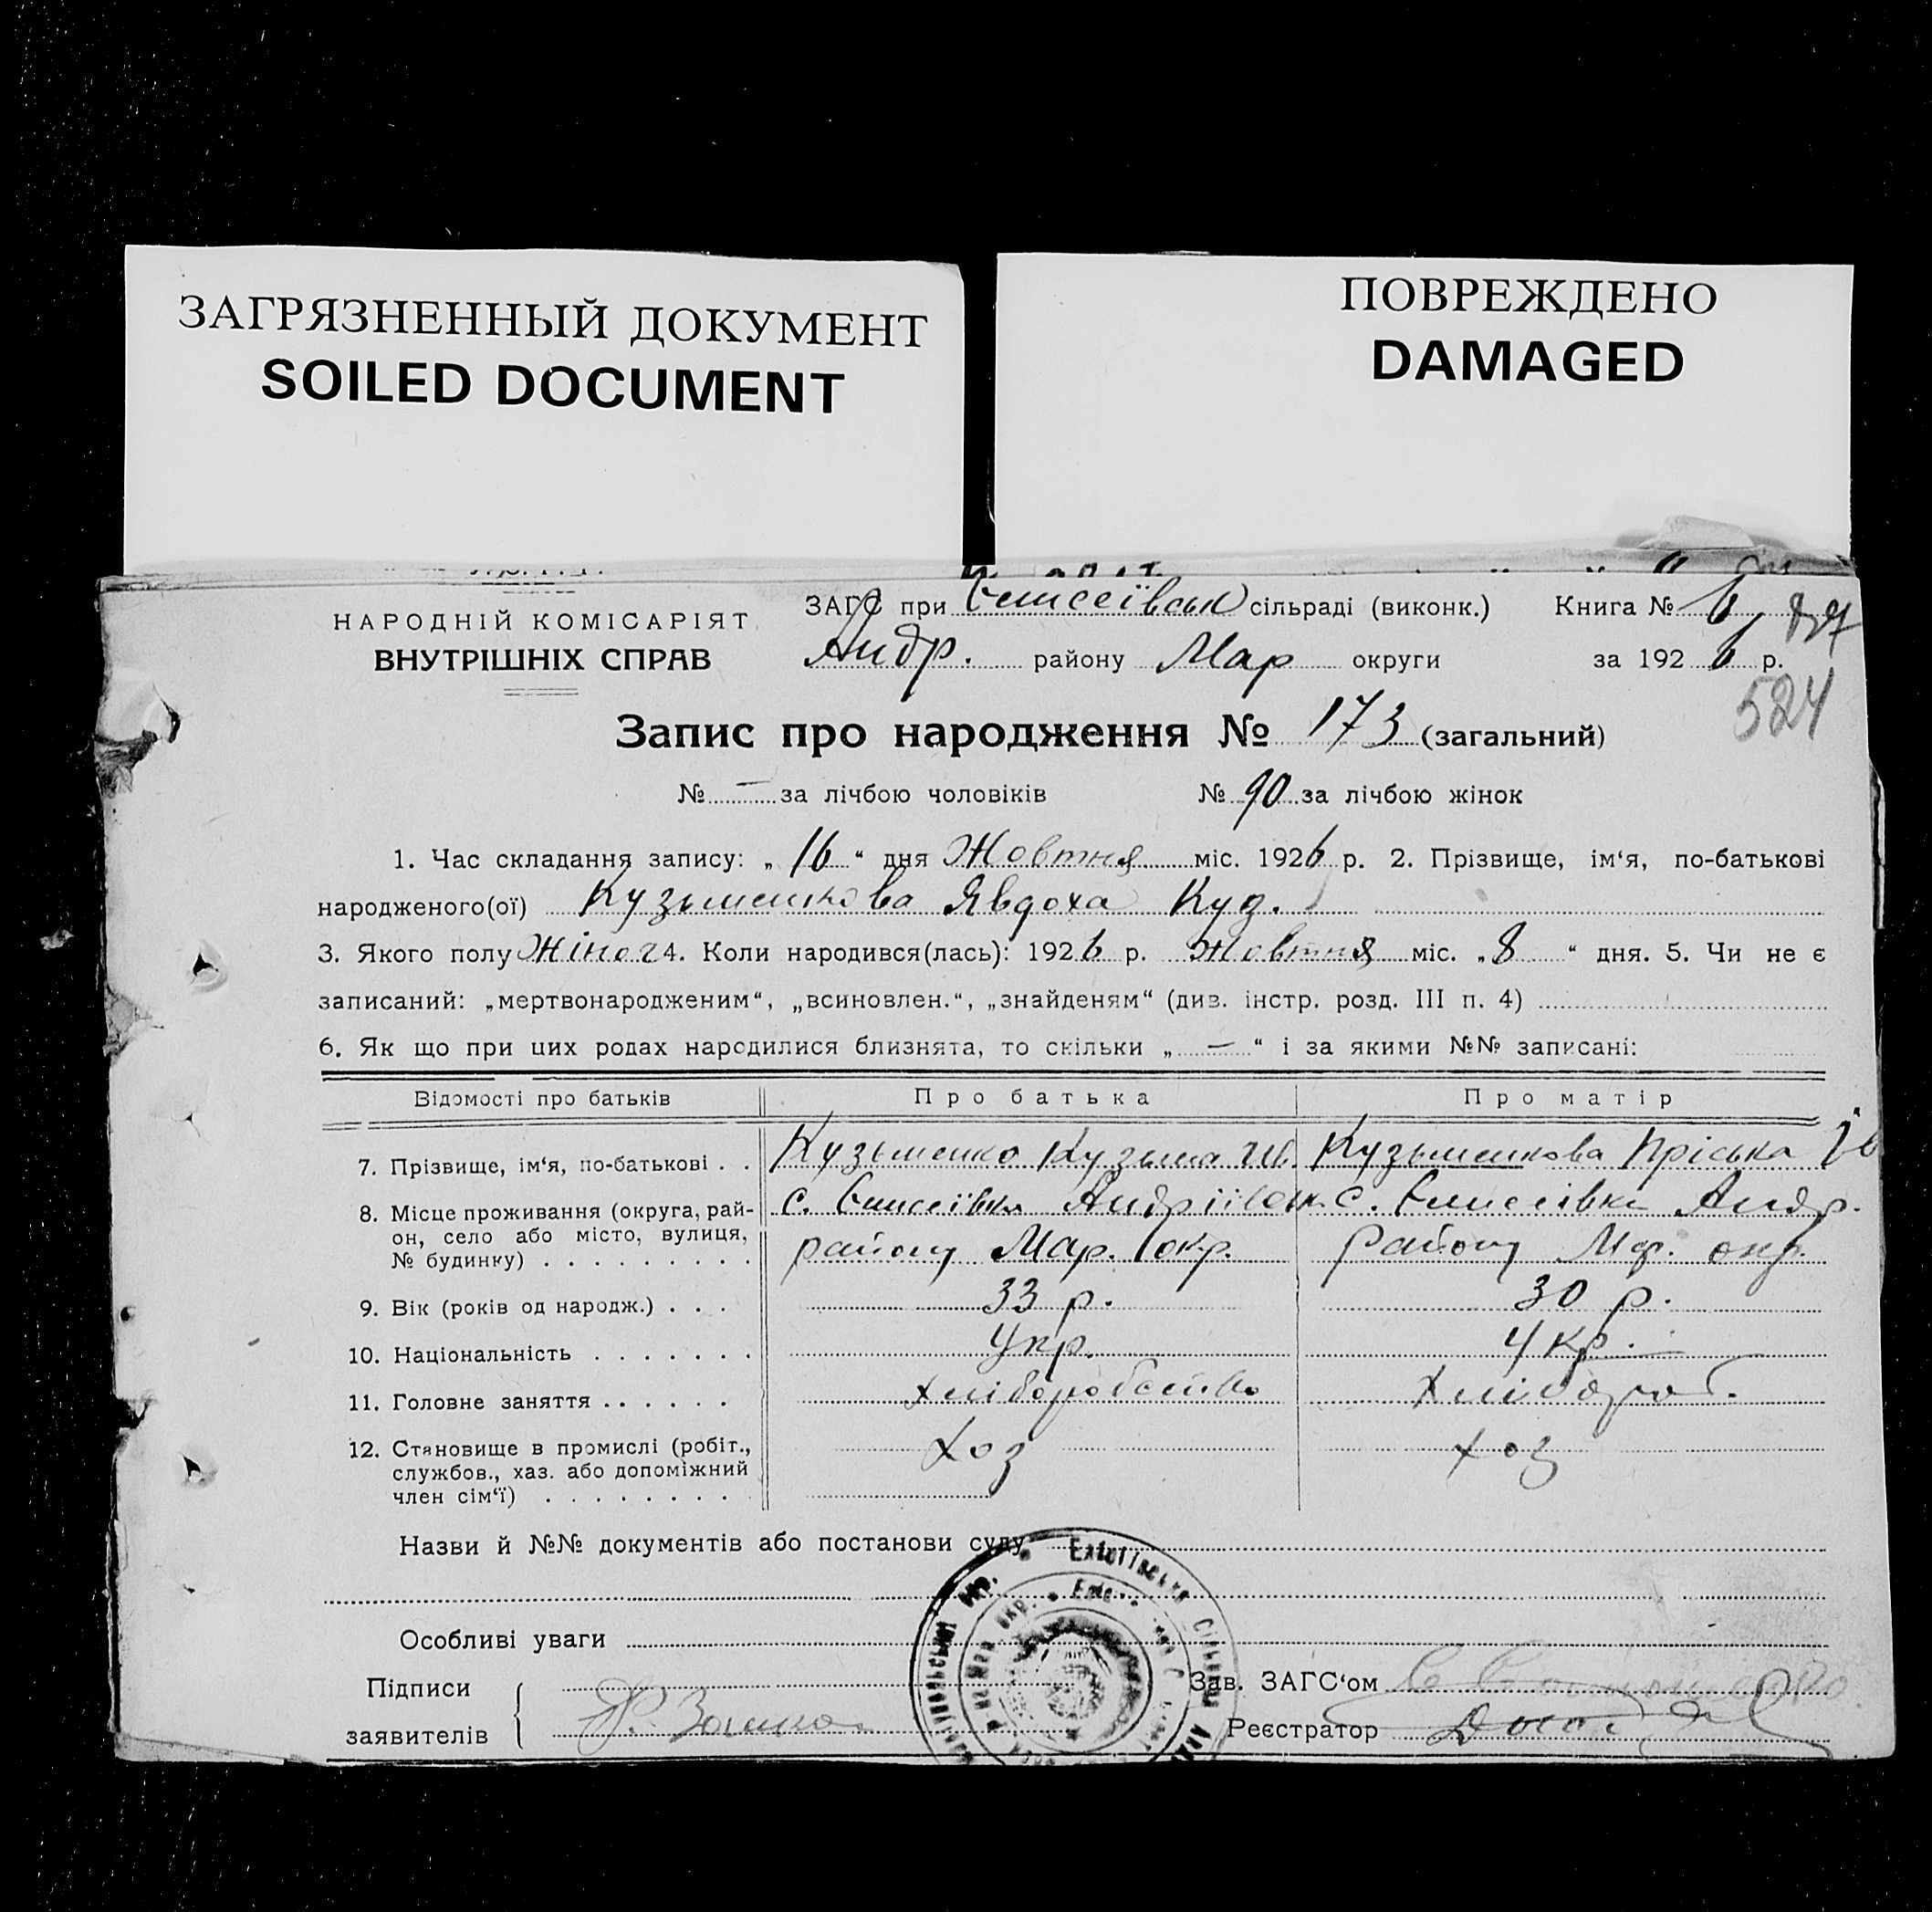 ЗАГРЯЗНЕННЫЙ ДОКУМЕНТ
SOILED DOCUMENT
ПОВРЕЖДЕНО
DAMAGED
НАРОДНІЙ КОМІСАРІЯТ
ВНУТРІШНІХ СПРАВ
ЗАГС при Єлисеївськ сільраді (виконк.) Книга № 6
Андр. району Мар округи за 1926 р.
524
Запис про народження № 173 (загальний)
№ — за лічбою чоловіків № 90 за лічбою жінок
1. Час складання запису: „16“ дня Жовтня міс. 1926 р. 2. Прізвище, ім‘я, по-батькові
народженого(ої) Кузьменкова Явдоха Куз.
3. Якого полу Жіноч 4. Коли народився(лась): 1926 р. Жовтня міс. „8“ дня. 5. Чи не є
записаний: „мертвонародженим“, „всиновлен.“, „знайденям“ (див. інстр. розд. III п. 4)
6. Як що при цих родах народилися близнята, то скільки „—“ і за якими №№ записані:
Відомості про батьків Про батька Про матір
7. Прізвище, ім‘я, по-батькові . . Кузьменко Кузьма Кузьменкова Пріська
8. Місце проживання (округа, рай- с. Єлисеївка с. Єлисеївка Андр.
он, село або місто, вулиця, району Мар. окр. Району Мар. окр.
№ будинку) . . . . . . . . .
9. Вік (років од народж.) . . . 33 р. 30 р.
10. Національність . . . . . . . Укр. Укр.
11. Головне заняття . . . . . . Хліборобство Хлібороб.
12. Становище в промислі (робіт., Хоз Хоз
службов., хаз. або допоміжний
член сім‘ї) . . . . . . . .
Назви й №№ документів або постанови суду
Особливі уваги
Підписи Зав. ЗАГС‘ом
заявителів Реєстратор